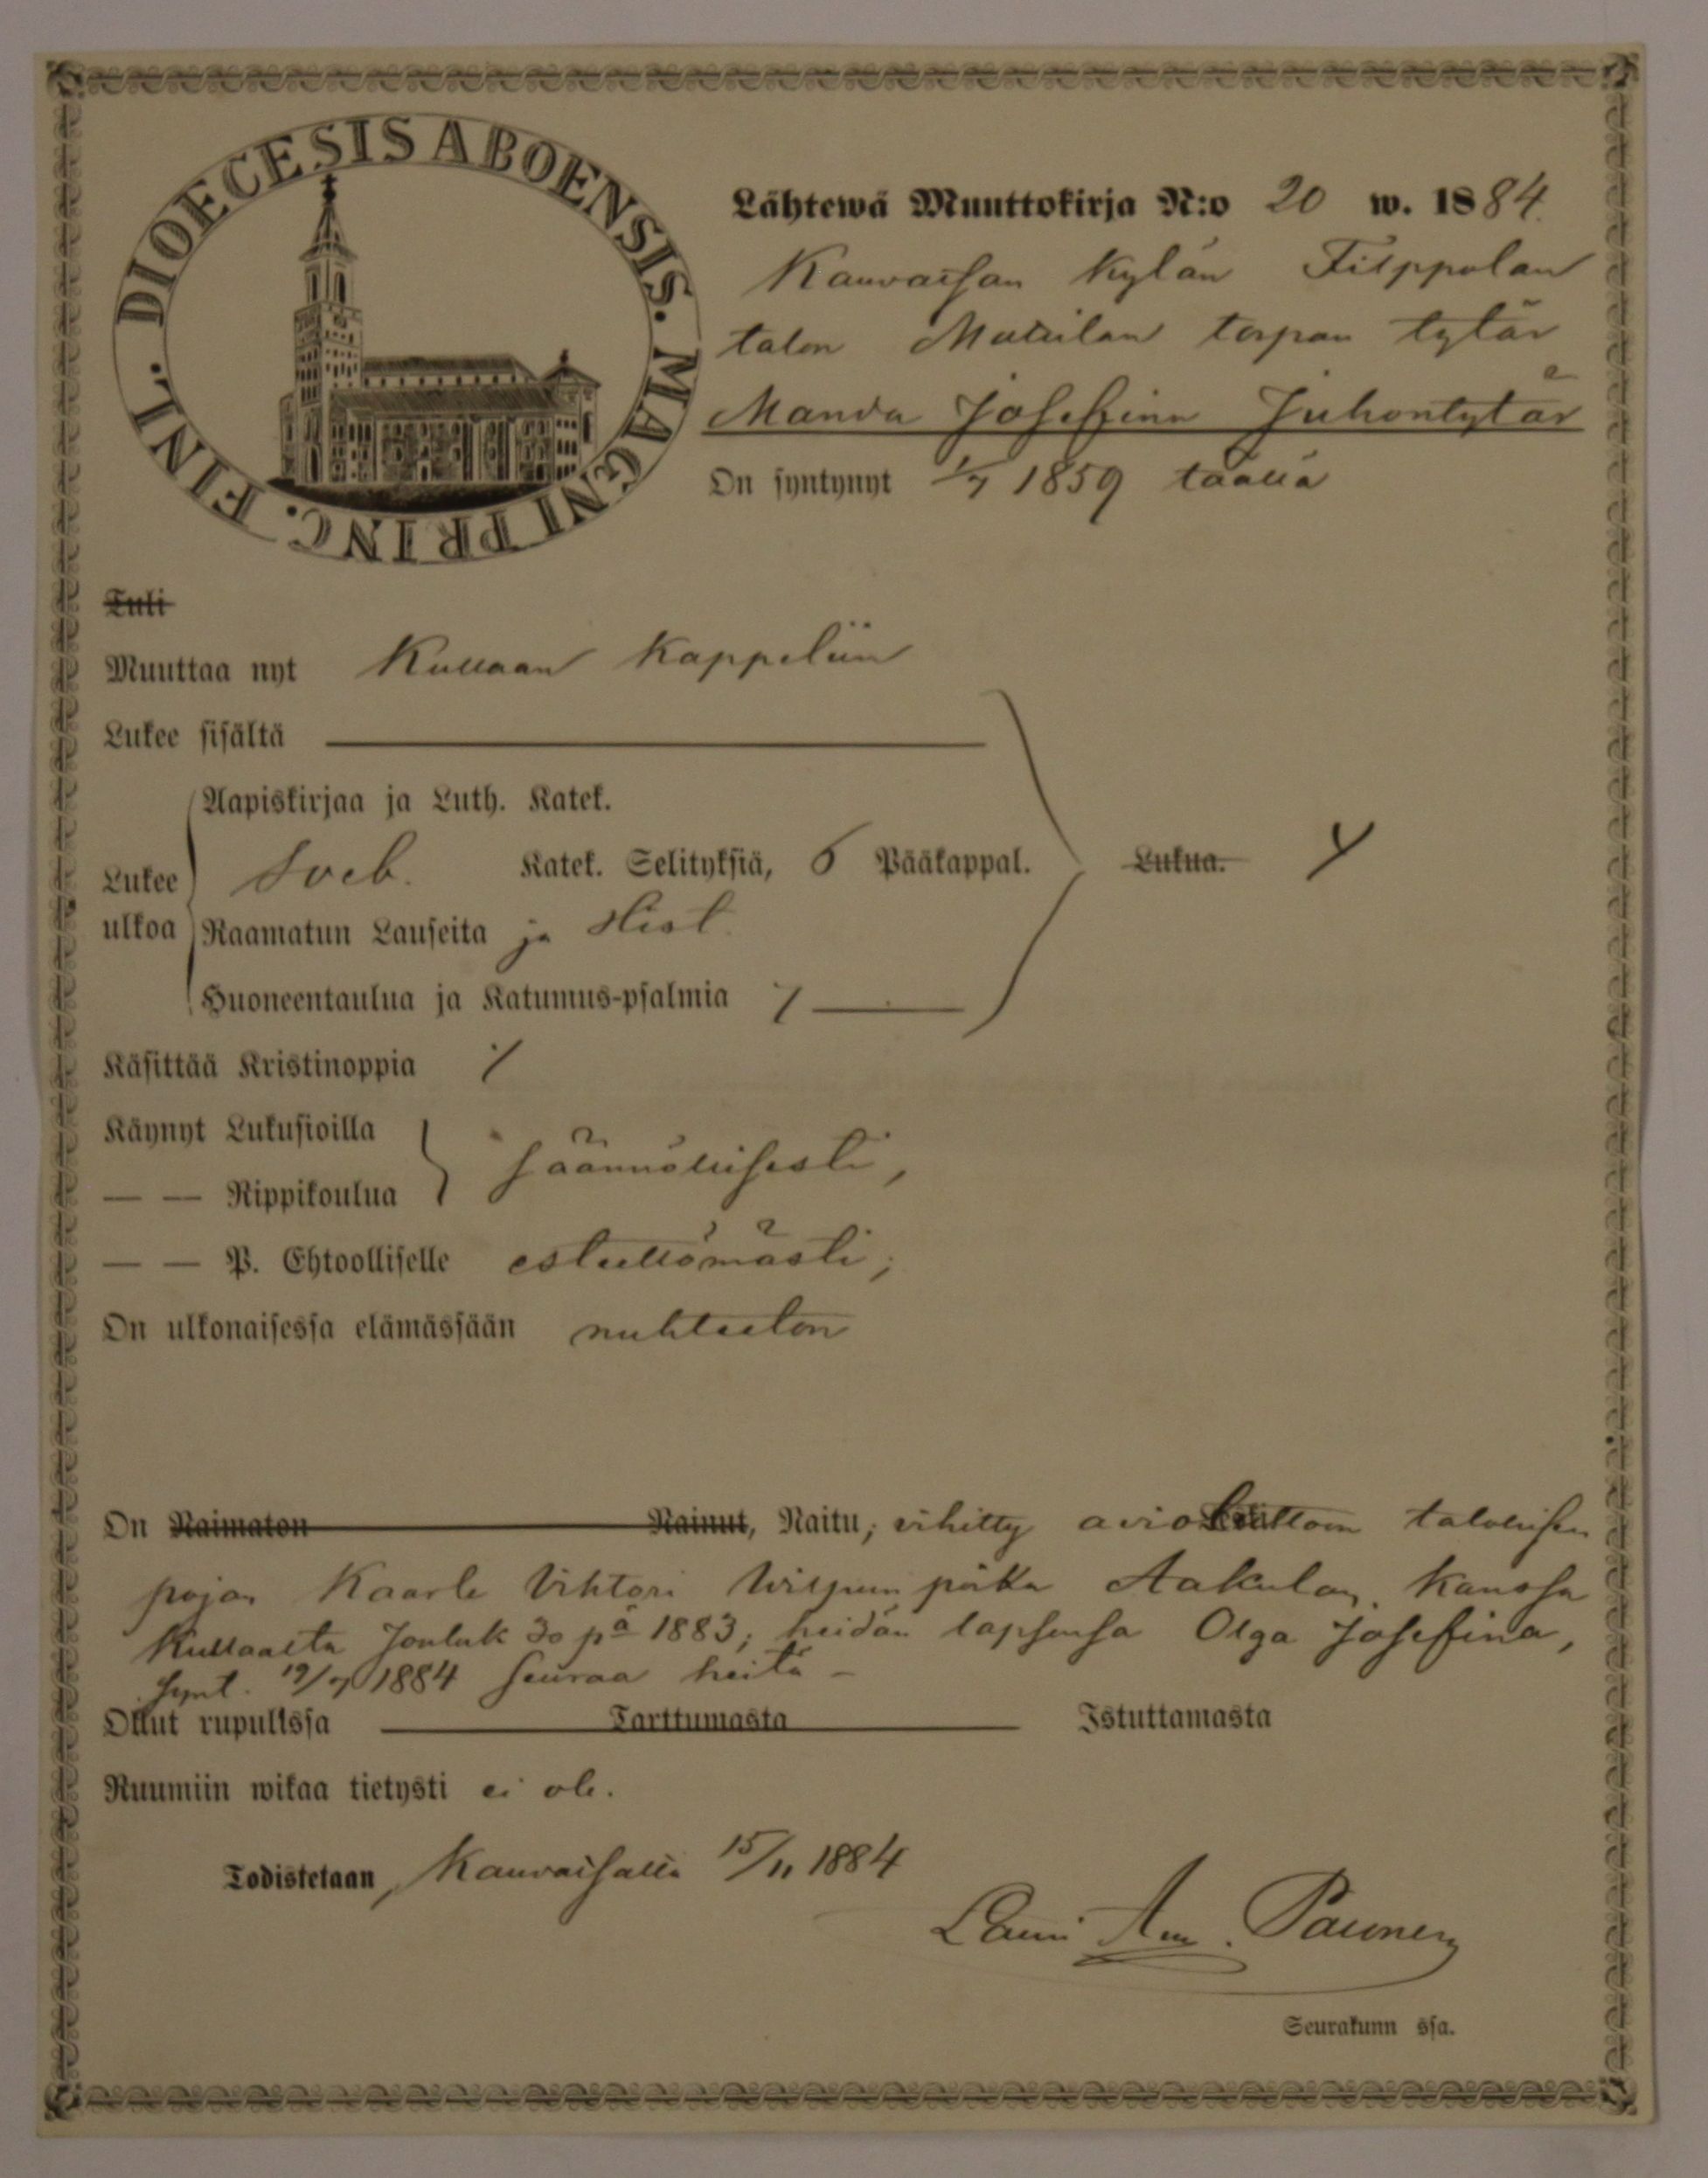 DIOECESIS ABOENSIS. MAGNI PRINC. FINL.
Lähtewä Muuttokirja N:o 20 w. 1884.
Kauvatsan kylän Filppolan
talon torpan tytär
Manda Josefina Juhontytär
On syntynyt 1/7 1859 täällä
Tuli
Muuttaa nyt Kullaan kappeliin
Lukee sisältä
Aapiskirjaa ja Luth. Katek.
Lukee ulkoa Sveb. Katek. Selityksiä, 6 Pääkappal. Lukua.
Raamatun Lauseita ja Hist.
Huoneentaulua ja Katumus-psalmia
Käsittää Kristinoppia
Käynyt Lukusioilla
— — Rippikoulua säännöllisesti,
— — P. Ehtoolliselle esteettömästi;
On ulkonaisessa elämässään nuhteeton
On Naimaton Nainut, Naitu; vihitty avio talollisen
pojan Kaarle Vihtori Aakulan kanssa
Kullaalta Jouluk 30 pä 1883; heidän lapsensa Olga Josefina,
synt. 19/7 1884 seuraa heitä –
Ollut rupulissa Tarttumasta Istuttamasta
Ruumiin wikaa tietysti ei ole.
Todistetaan, Kauvatsalla 15/11 1884
Lauri Am. Paunen
Seurakunn ssa.